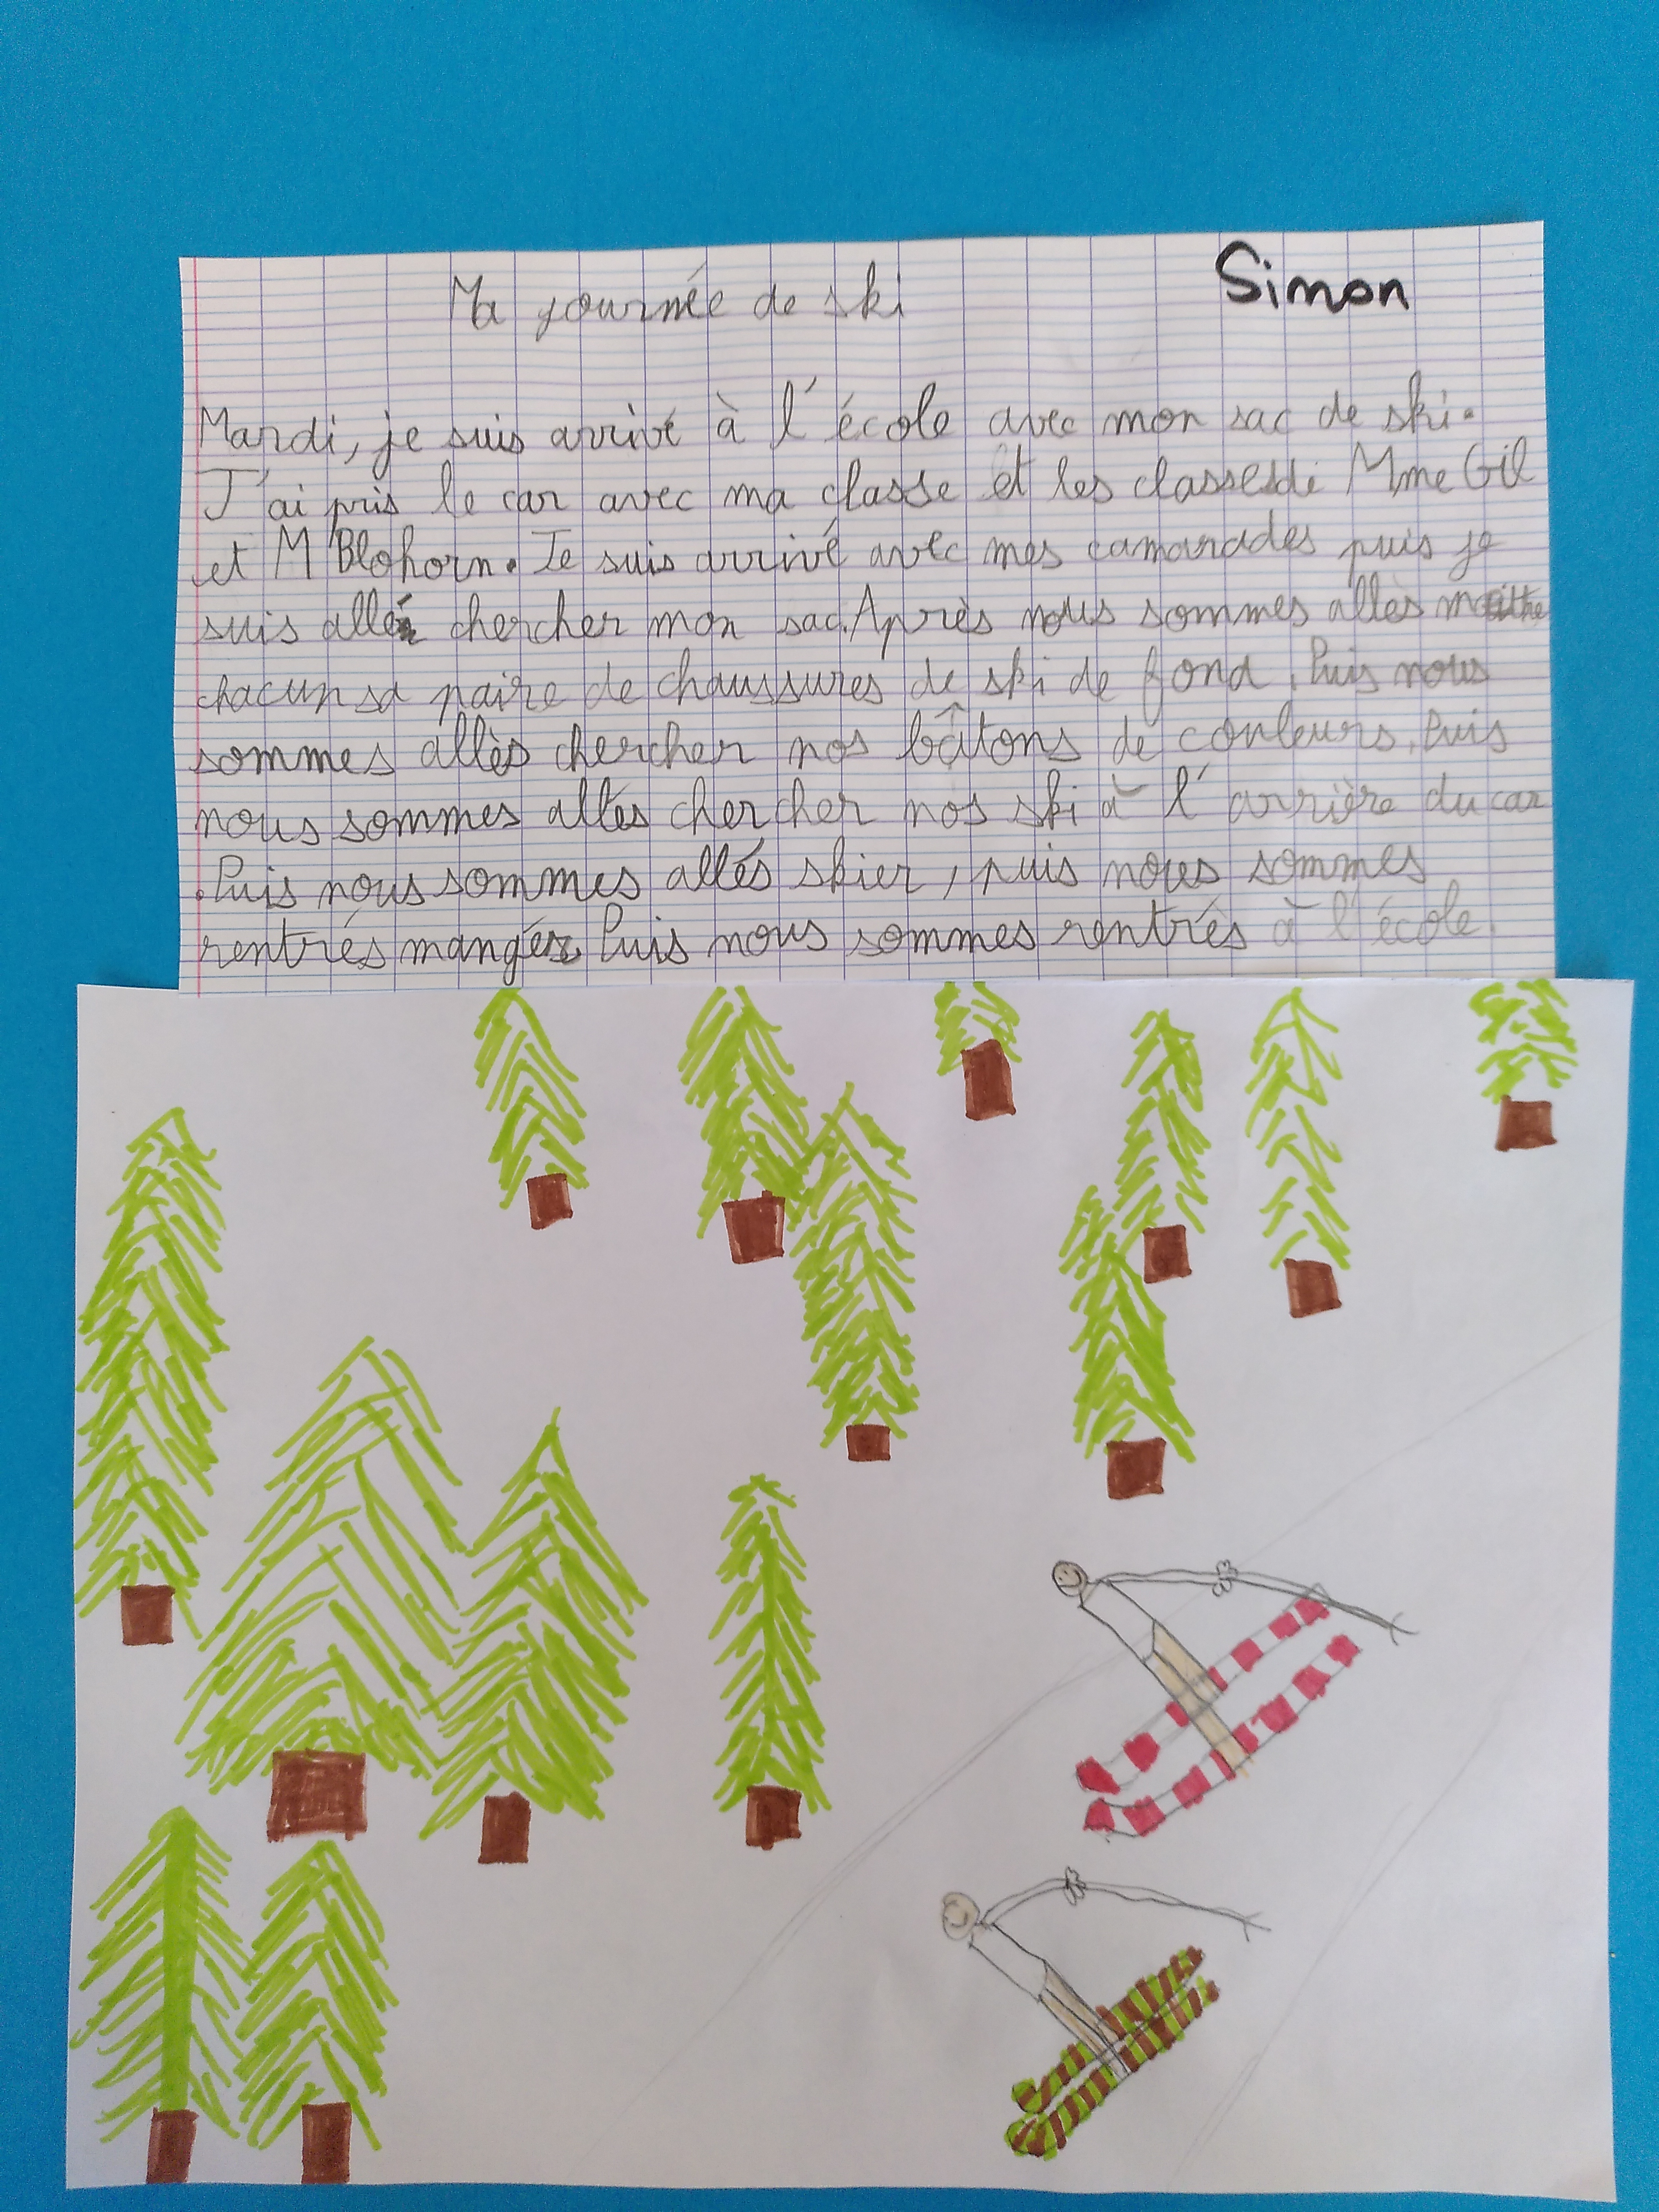 Ma journée de ski
Simon
Mardi, je suis arrivé à l'école avec mon sac de ski.
J'ai pris le car avec ma classe et les classes de Mme Gil
et M Blohorn. Je suis arrivé avec mes camarades puis je
suis allé chercher mon sac. Après nous sommes allés
chacun sa paire de chaussures de ski de fond. Puis nous
sommes allés chercher nos bâtons de couleurs. Puis
nous sommes allés chercher nos ski à l'arrière du car
. Puis nous sommes allés skier, puis nous sommes
rentrés manger. Puis nous sommes rentrés à l'école.